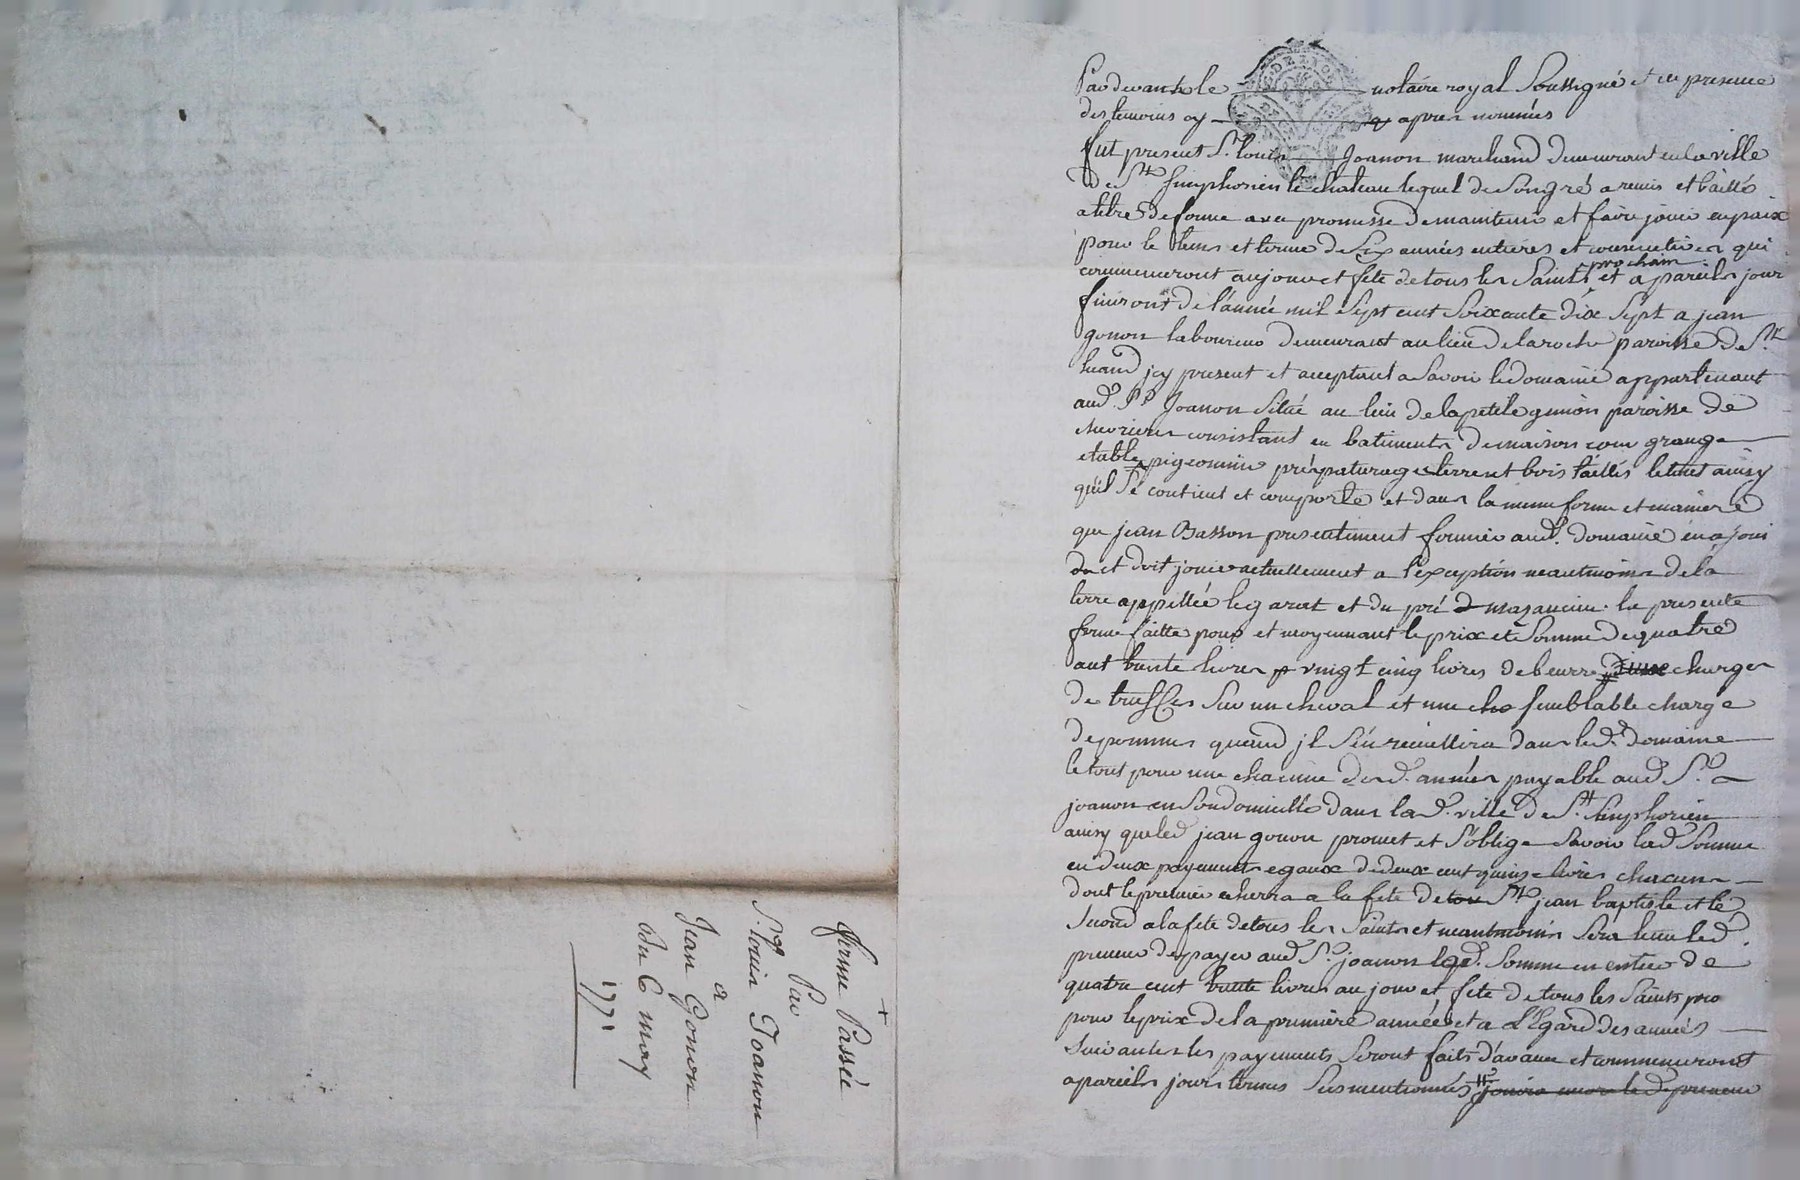 ferme Passée
Par
Sr. louis Joanon
a
Jean Gonon
du 6 may
1771
Pardevant le notaire royal Soussigné et en presence
des temoins cy apres nommés
fut present Sr. louis Joanon marchand demeurant en la ville
de St. Simphorien le chateau lequel de Son gré a remis et baillé
a titre de ferme avec promesse de maintenir et faire jouir en paix
pour le tems et terme de Six années entieres et consecutives qui
commenceront au jour et fete de tous les Saints prochain et a pareils jour
finiront de l'année mil Sept cent Soixante dix Sept a jean
gonon laboureur demeurant au lieu de la roche paroisse de St.
heand jcy present et acceptant a Savoir le domaine appartenant
aud. Sr. Joanon Situé au lieu de la petite gimon paroisse de
chevrieres consistant en batiments de maison cour grange
etable pigeonnier prés paturages terres et bois taillis le tout ainsy
qu'il Se contient et comporte et dans la meme forme et maniere
que jean Basson presentement fermier aud. domaine en a joui
ou et doit jouir actuellement a l'exception neantmoins de la
terre appellée le garat et du pré la presente
ferme faitte pour et moyennant le prix et Somme de quatre
cent trente livres vingt cinq livres de beurre charges
de truffes Sur un cheval et une che semblable charge
de pommes quand jl S'en recueillira dans led. domaine
le tout pour une chacune desd. années payable aud. Sr.
joanon en Son domicille dans lad. ville de St. Simphorien
ainsy que led. jean gonon promet et S'oblige Savoir lad. Somme
en deux payements egaux de deux cent quinze livres chacun
dont le premier echerra a la fete de tou St. jean baptiste et le
Second a la fete de tous les Saints et neantmoins Sera tenu led.
preneur de payer aud. Sr. joanon lad. Somme en entier de
quatre cent trente livres au jour et fete de tous les Saints pro
pour le prix de la premiere année et a L'Egard des années
Suivantes les payements Seront faits d'avance et commenceront
a pareils jours termes Susmentionnés jouira encore led. preneur